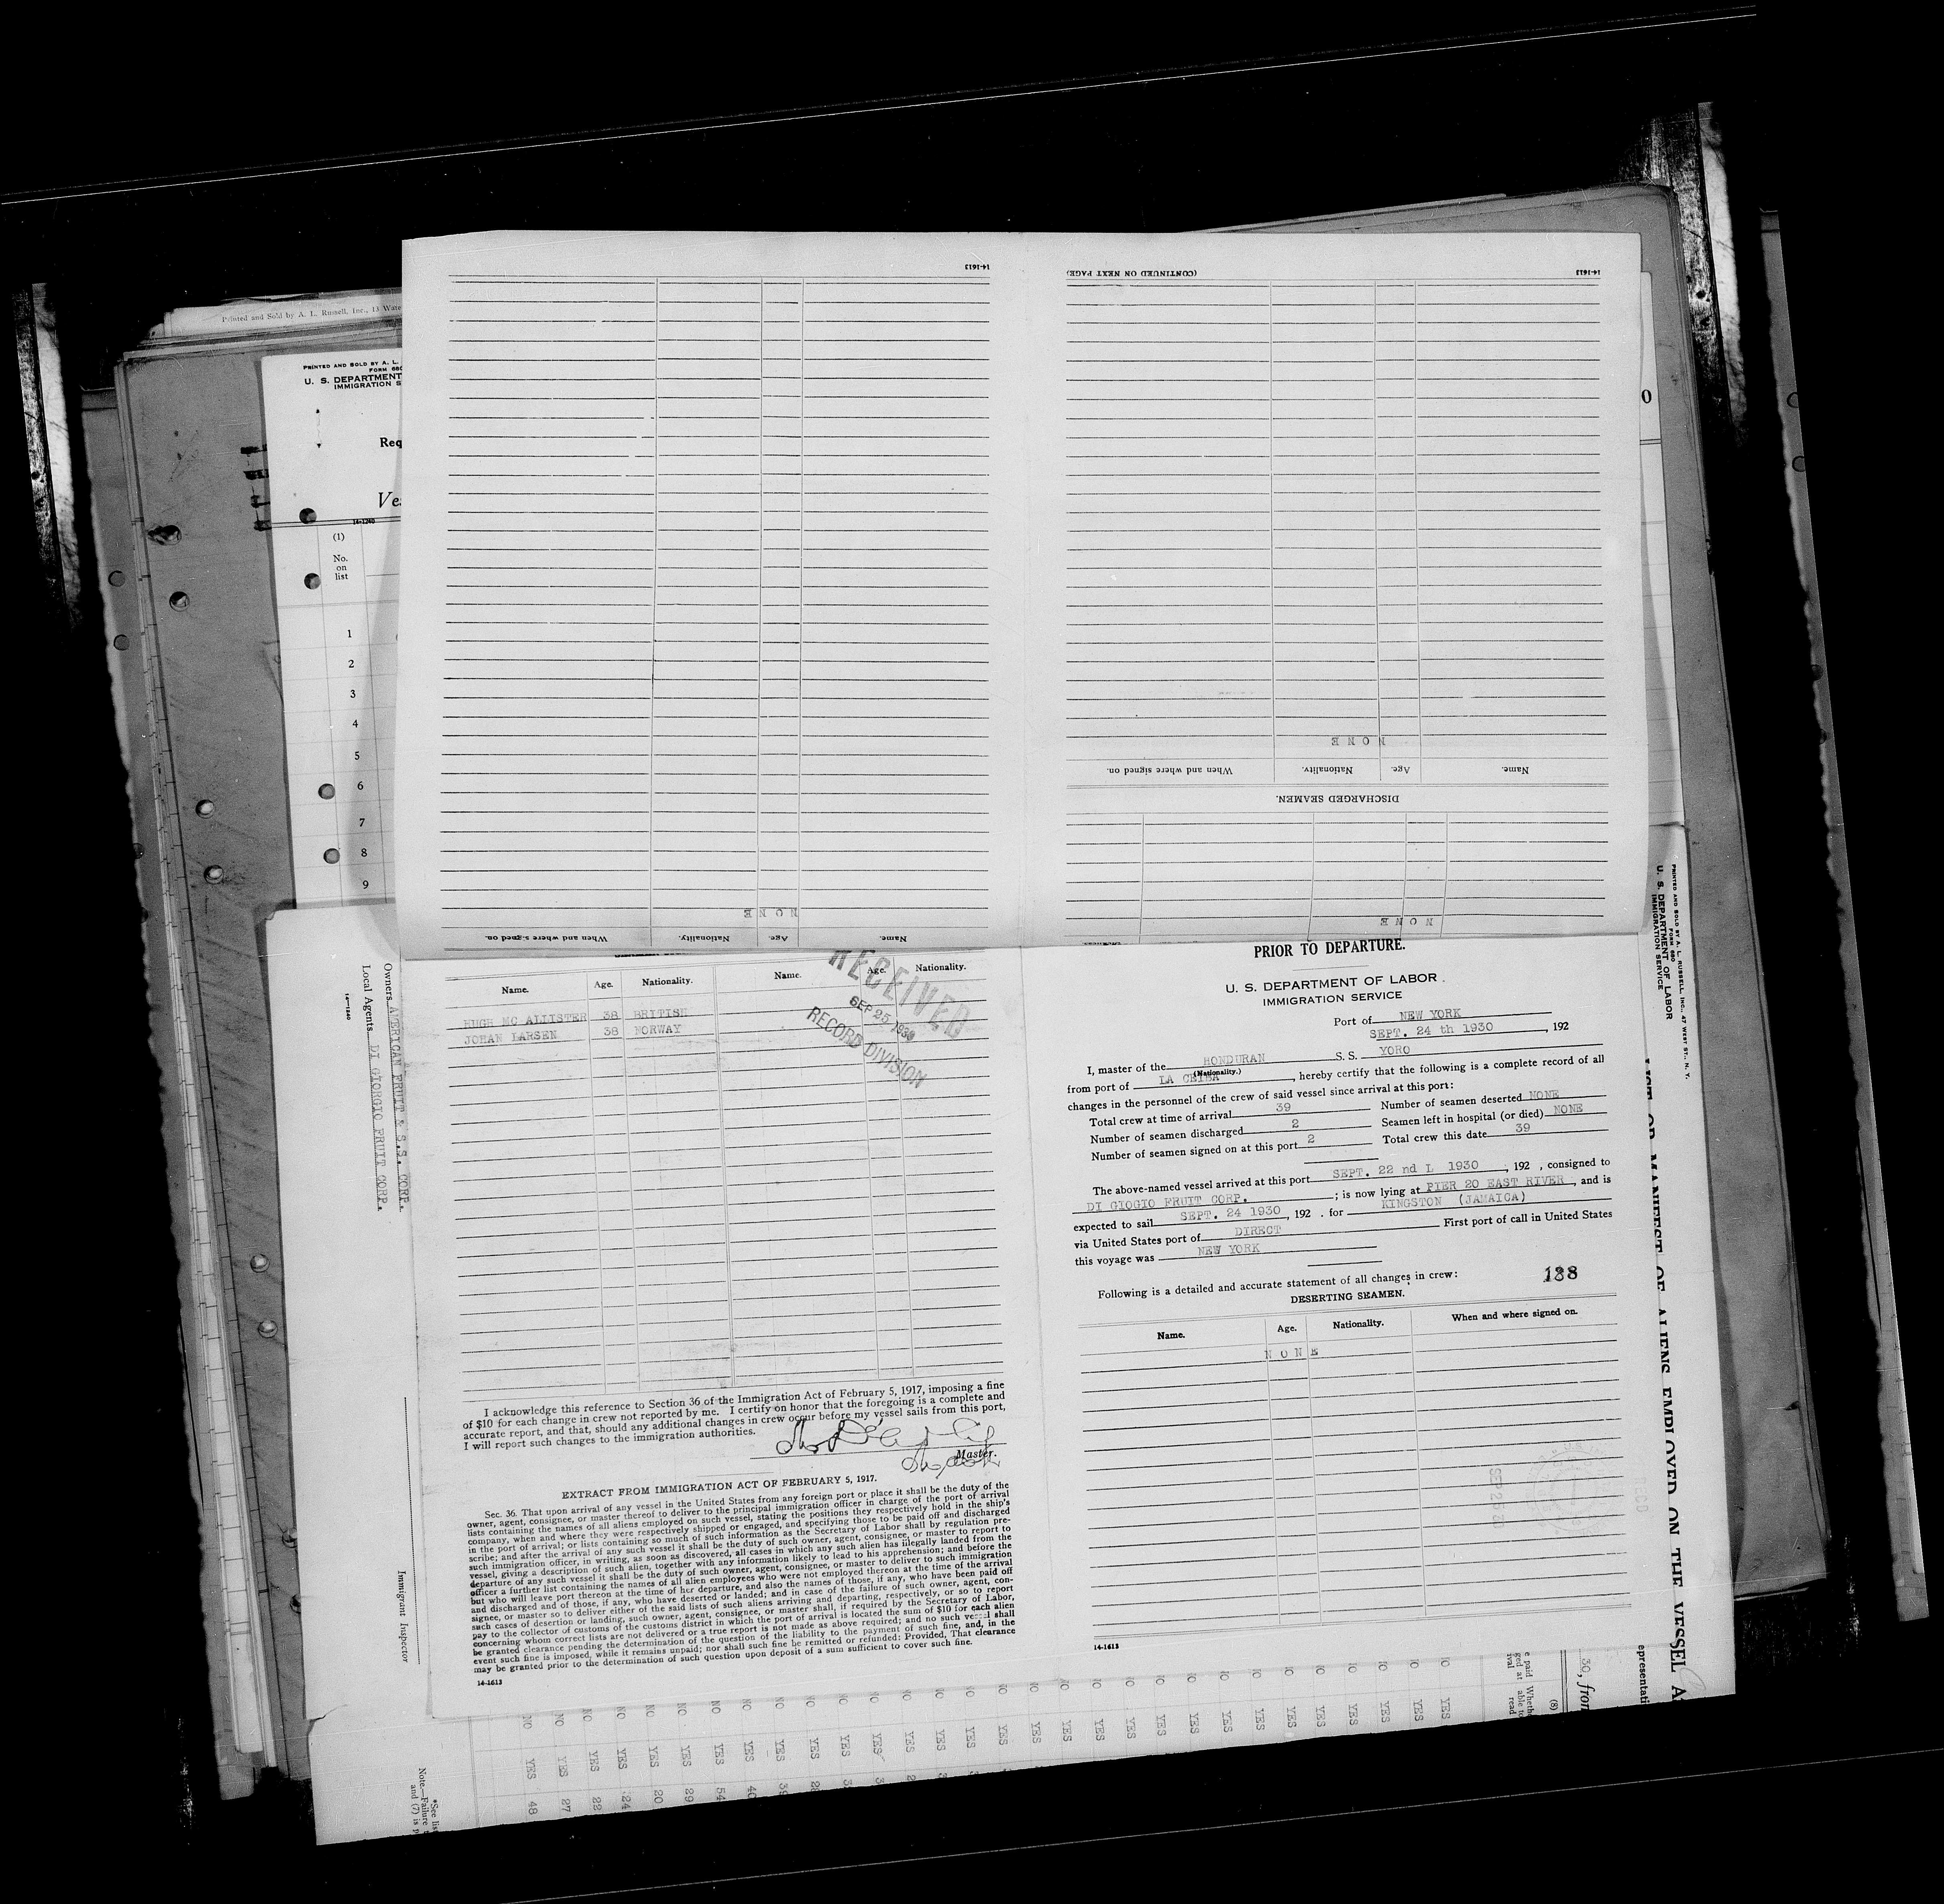 14-1613
When and where signed on.
Nationality.
Age.
Name.
NONE
(CONTINUED ON NEXT PAGE)
14-1613
DISCHARGED SEAMEN.
Name.
Age.
Nationality.
When and where signed on.
NONE
NONE
Printed and Sold by A. L. Russell, Inc., 13 Wate
PRINTED AND SOLD BY A. L.
FORM 680
U. S. DEPARTMENT
IMMIGRATION S
Req
Ve
14-1240
(1)
No.
on
list
1
2
3
4
5
6
7
8
9
0
Name. Age. Nationality. Name. Age. Nationality.
HUGH MC ALLISTER 38 BRITISH
JOHAN LARSEN 38 NORWAY
RECEIVED
SEP 25 1930
RECORD DIVISION
I acknowledge this reference to Section 36 of the Immigration Act of February 5, 1917, imposing a fine
of $10 for each change in crew not reported by me. I certify on honor that the foregoing is a complete and
accurate report, and that, should any additional changes in crew occur before my vessel sails from this port,
I will report such changes to the immigration authorities.
Master.
EXTRACT FROM IMMIGRATION ACT OF FEBRUARY 5, 1917.
Sec. 36. That upon arrival of any vessel in the United States from any foreign port or place it shall be the duty of the
owner, agent, consignee, or master thereof to deliver to the principal immigration officer in charge of the port of arrival
lists containing the names of all aliens employed on such vessel, stating the positions they respectively hold in the ship's
company, when and where they were respectively shipped or engaged, and specifying those to be paid off and discharged
in the port of arrival; or lists containing so much of such information as the Secretary of Labor shall by regulation pre-
scribe; and after the arrival of any such vessel it shall be the duty of such owner, agent, consignee, or master to report to
such immigration officer, in writing, as soon as discovered, all cases in which any such alien has illegally landed from the
vessel, giving a description of such alien, together with any information likely to lead to his apprehension; and before the
departure of any such vessel it shall be the duty of such owner, agent, consignee, or master to deliver to such immigration
officer a further list containing the names of all alien employees who were not employed thereon at the time of the arrival
but who will leave port thereon at the time of her departure, and also the names of those, if any, who have been paid off
and discharged and of those, if any, who have deserted or landed; and in case of the failure of such owner, agent, con-
signee, or master so to deliver either of the said lists of such aliens arriving and departing, respectively, or so to report
such cases of desertion or landing, such owner, agent, consignee, or master shall, if required by the Secretary of Labor,
pay to the collector of customs of the customs district in which the port of arrival is located the sum of $10 for each alien
concerning whom correct lists are not delivered or a true report is not made as above required; and no such vessel shall
be granted clearance pending the determination of the question of the liability to the payment of such fine, and, in the
event such fine is imposed, while it remains unpaid; nor shall such fine be remitted or refunded: Provided, That clearance
may be granted prior to the determination of such question upon deposit of a sum sufficient to cover such fine.
14-1613
PRIOR TO DEPARTURE.
U. S. DEPARTMENT OF LABOR
IMMIGRATION SERVICE
Port of NEW YORK
SEPT. 24 th 1930, 192
I, master of the HONDURAN S. S. YORO
(Nationality.)
from port of LA CEIBA, hereby certify that the following is a complete record of all
changes in the personnel of the crew of said vessel since arrival at this port:
Total crew at time of arrival 39 Number of seamen deserted NONE
Number of seamen discharged 2 Seamen left in hospital (or died) NONE
Number of seamen signed on at this port 2 Total crew this date 39
The above-named vessel arrived at this port SEPT. 22 nd L 1930, 192 , consigned to
DI GIOGIO FRUIT CORP. ; is now lying at PIER 20 EAST RIVER, and is
expected to sail SEPT. 24 1930, 192 . for KINGSTON (JAMAICA)
via United States port of DIRECT First port of call in United States
this voyage was NEW YORK
Following is a detailed and accurate statement of all changes in crew:
188
DESERTING SEAMEN.
Name. Age. Nationality. When and where signed on.
NONE
14-1613
Owners AMERICAN FRUIT & S.S. CORP.
Local Agents DI GIORGIO FRUIT CORP.
14-1240
Immigrant Inspector
*See lis
Note.—Failure t
and (7) is p
PRINTED AND SOLD BY A. L. RUSSELL, INC., 47 WEST ST., N. Y.
FORM 680
U. S. DEPARTMENT OF LABOR
IMMIGRATION SERVICE
LIST OR MANIFEST OF ALIENS EMPLOYED ON THE VESSEL AS
epresentati
30, from
(8)
Wheth
able to
read
NO NO NO NO NO NO NO NO NO NO NO NO
YES YES YES YES YES YES YES YES YES YES YES YES
48 27 22 24 20 29 54 40